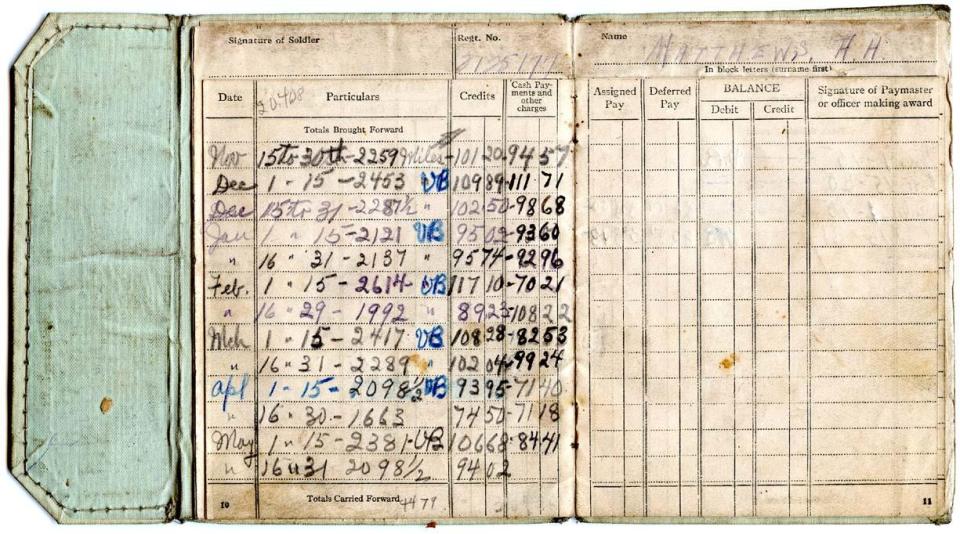 Signature of Soldier
Regt. No.
2125177
Date Particulars Credits Cash Pay-ments and other charges
Totals Brought Forward
Nov 15 to 30th - 2259 Miles - 101 20 - 94 57
Dec 1 - 15 - 2453 VB 109 89 - 111 71
Dec 15 to 31 - 2287½ " 102 50 - 98 68
Jan 1 " 15 - 2121 VB 95 02 - 93 60
" 16 " 31 - 2137 " 95 74 - 92 96
Feb. 1 " 15 - 2614 - VB 117 10 - 70 21
" 16 " 29 - 1992 " 89 23 - 108 22
Mch 1 " 15 - 2417 VB 108 28 - 82 53
" 16 " 31 - 2289 " 102 04 - 99 24
Apl 1 - 15 - 2098½ VB 93 95 - 71 40
" 16 " 30 - 1663 74 50 - 71 18
May 1 " 15 - 2381 - VB 106 68 - 84 41
" 16 " 31 2098½ 94 02
Totals Carried Forward
10
Name MATTHEWS, H H.
In block letters (surname first)
Assigned Pay Deferred Pay BALANCE Debit Credit Signature of Paymaster or officer making award
11